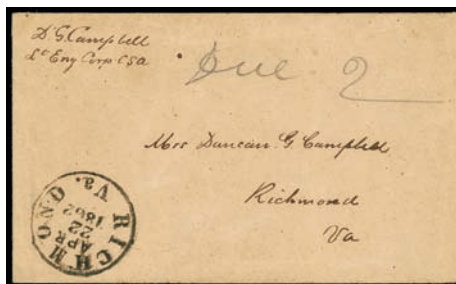 D. G. Campbell
Lt Eng Corp CSA
Due 2
Mrs Duncan. G. Campbell
Richmond
Va
RICHMOND Va.
APR
22
1862